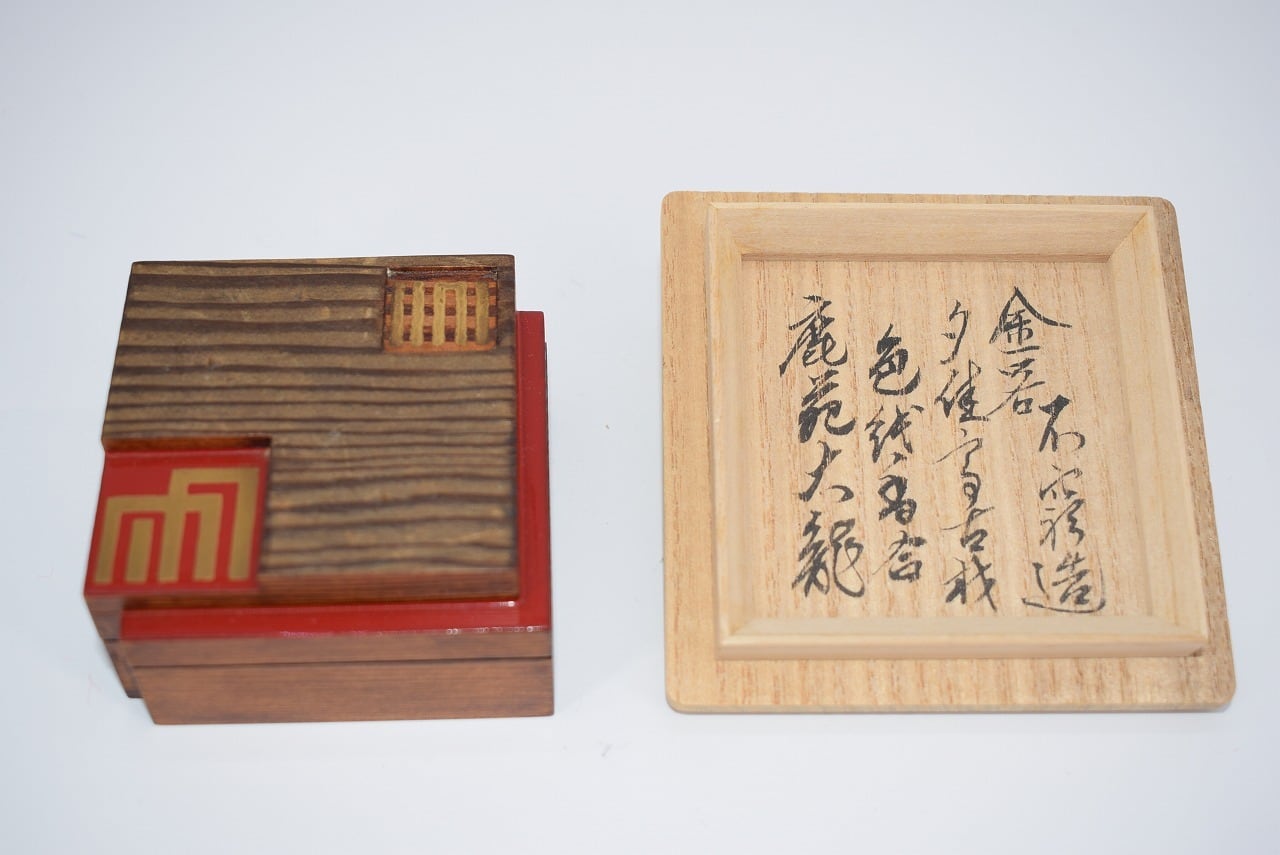 不窮造
金閣
夕佳亭古材
色紙香合
鹿苑大龍